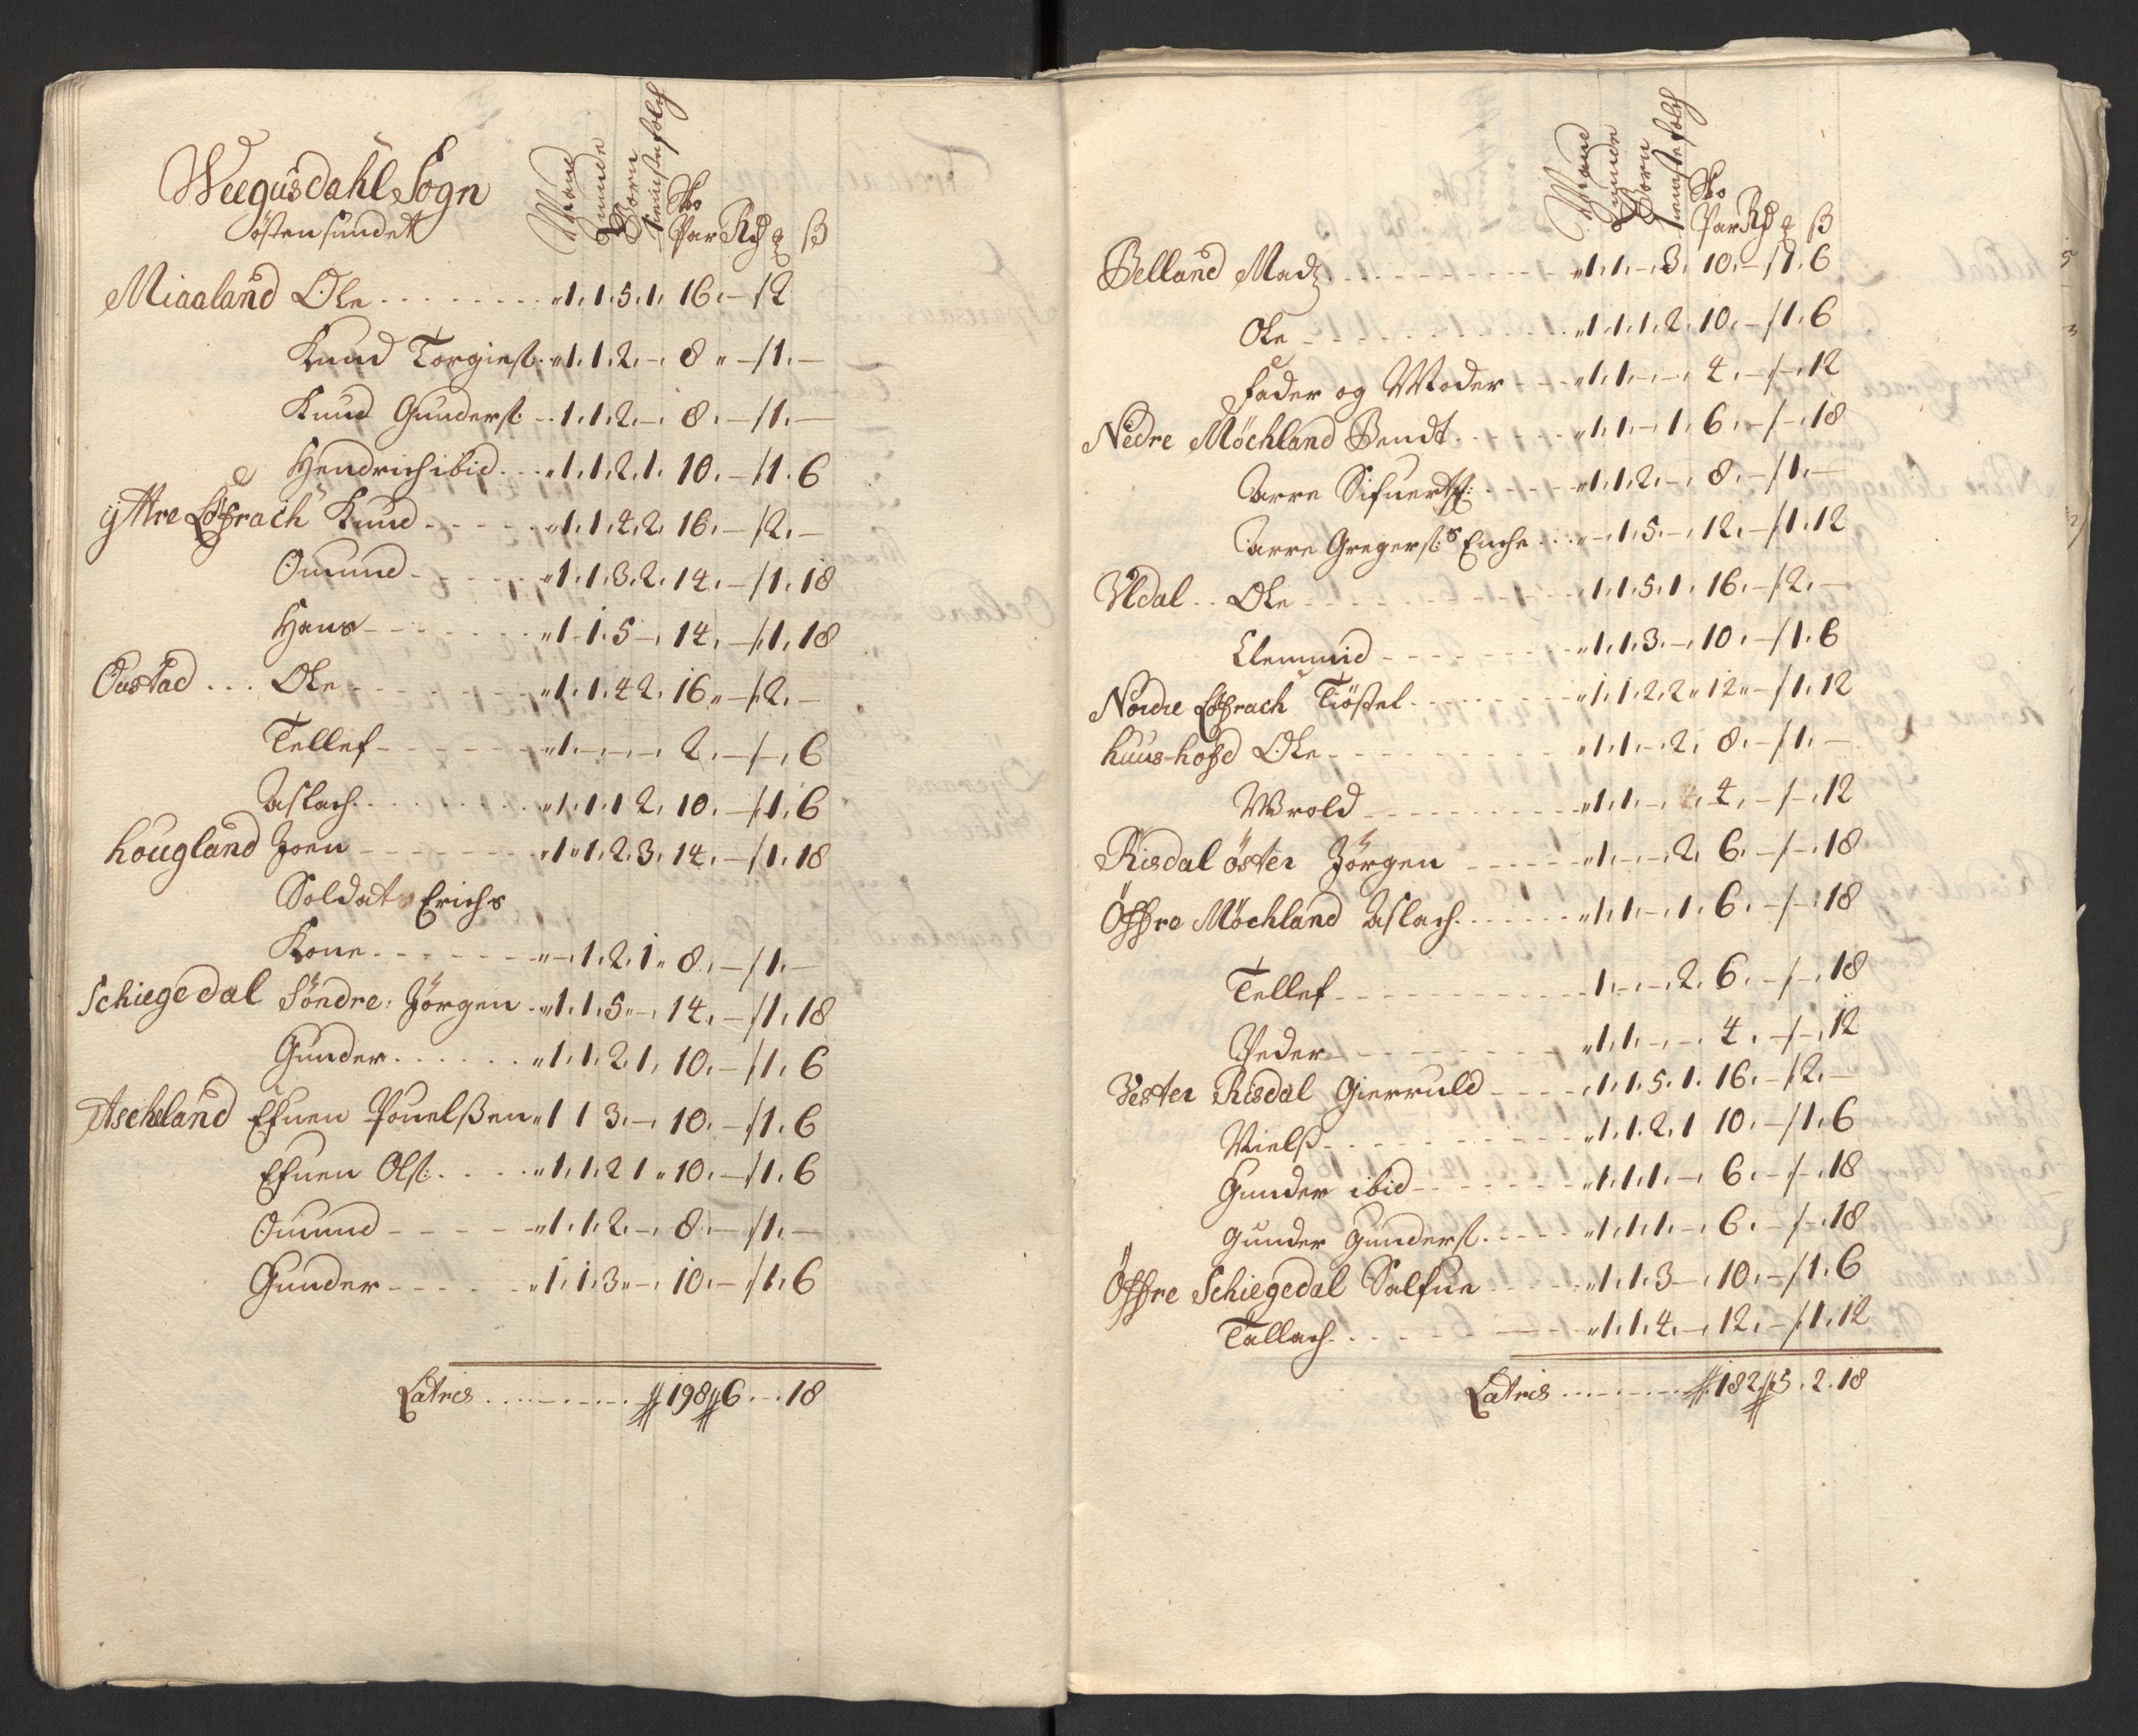 Weegusdahl Sogn
östensundet
Mand
Quinde
Börn
tienistefolch
Sko
Par Rd ß
Miaaland Ole 1. 1. 5. 1. 16. – / 2
Knud Torgiesß. 1. 1. 2. – 8 – / 1. –
Knud Gunderß. 1. 1. 2. – 8. – / 1. –
Hendrich ibid 1. 1. 2. 1. 10. – / 1. 6
ÿttre Knud 1. 1. 4. 2. 16. – / 2. –
Omund 1. 1. 3. 2. 14. – / 1. 18
Hans 1. 1. 5 – 14. – / 1. 18
Oustad Ole 1. 1. 4 2. 16. – / 2. –
Tellef 1. – – – 2. – / – 6
Aslach 1. 1. 1 2. 10. – / 1. 6
hougland Joen 1. 1. 2. 3. 14. – / 1. 18
Soldat Erichs
Kone – 1. 2. 1. 8. – / 1. –
Schiegedal Söndre: Jörgen 1. 1. 5 – 14. – / 1. 18
Gunder 1. 1. 2. 1. 10. – / 1. 6
Ascheland Efuen Pouelßen 1 1 3. – 10. – / 1. 6
Efuen Olß. 1. 1. 2 1 10. – / 1. 6
Omund 1. 1. 2. – 8. – / 1. –
Gunder 1. 1. 3 – 10. – / 1. 6
Latris 198 6. – 18
Mand
Quinde
Börn
tienistefolch
Sko
Par Rd ß
Belland Madz 1. 1. – 3. 10. – / 1. 6
Ole 1. 1. 1. 2. 10. – / 1. 6
Fader og Moder 1. 1. – – 4. – / – 12
Nedre Möchland Bendt 1. 1. – 1. 6. – / – 18
Aarre Sifuertß. 1. 1. 2. – 8. – / 1. –
Aarre Gregerß.s Enche – 1. 5. – 12. – / 1. 12
Uldal Ole 1. 1. 5. 1. 16. – / 2. –
Clemmid 1. 1. 3. – 10. – / 1. 6
Nordre Tiößel 1. 1. 2. 2. 12. – / 1. 12
huus-hofd Ole 1. 1. – 2. 8. – / 1. –
Wrold 1. 1. – 4. – / – 12
Risdal öster Jörgen 1. – – 2. 6. – / – 18
Öffre Möchland Aslach 1. 1. – 1. 6. – / – 18
Tellef 1. – – 2. 6. – / – 18
Peder 1. 1. – – 4. – / – 12
Vester Risdal Gierruld 1. 1. 5. 1. 16. – / 2. –
Nielß 1. 1. 2. 1 10. – / 1. 6
Gunder ibid 1. 1. 1. – 6. – / – 18
Gunder Gunderß. 1. 1. 1. – 6. – / – 18
Öffre Schiegedal Salfue 1. 1. 3 – 10. – / 1. 6
Tallach 1. 1. 4. – 12. – / 1. 12
Latris 182 5. 2. 18